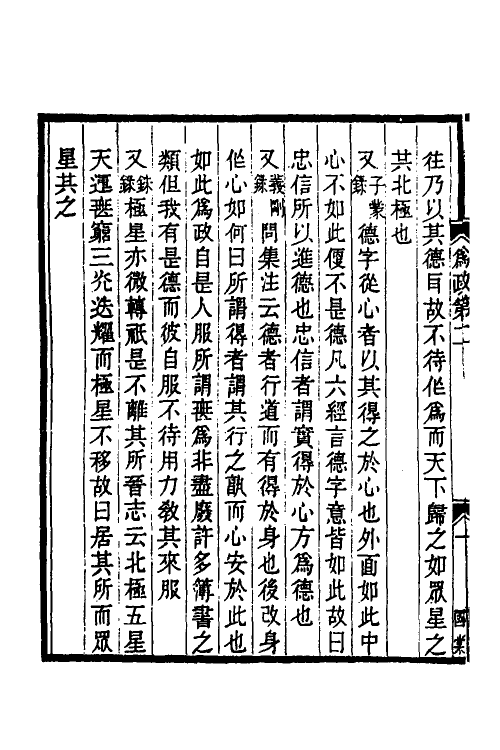 爲政第二
一
國業
往乃以其德耳故不待作爲而天下歸之如眾星之
其北極也
又子蒙錄德字從心者以其得之於心也外面如此中
心不如此便不是德凡六經言德字意皆如此故曰
忠信所以進德也忠信者謂實得於心方爲德也
又義剛錄問集注云德者行道而有得於身也後改身
作心如何曰所謂得者謂其行之熟而心安於此也
如此爲政自是人服所謂無爲非盡廢許多簿書之
類但我有是德而彼自服不待用力教其來服
又銖錄極星亦微轉祇是不離其所晉志云北極五星
天運無窮三光迭耀而極星不移故曰居其所而眾
星其之